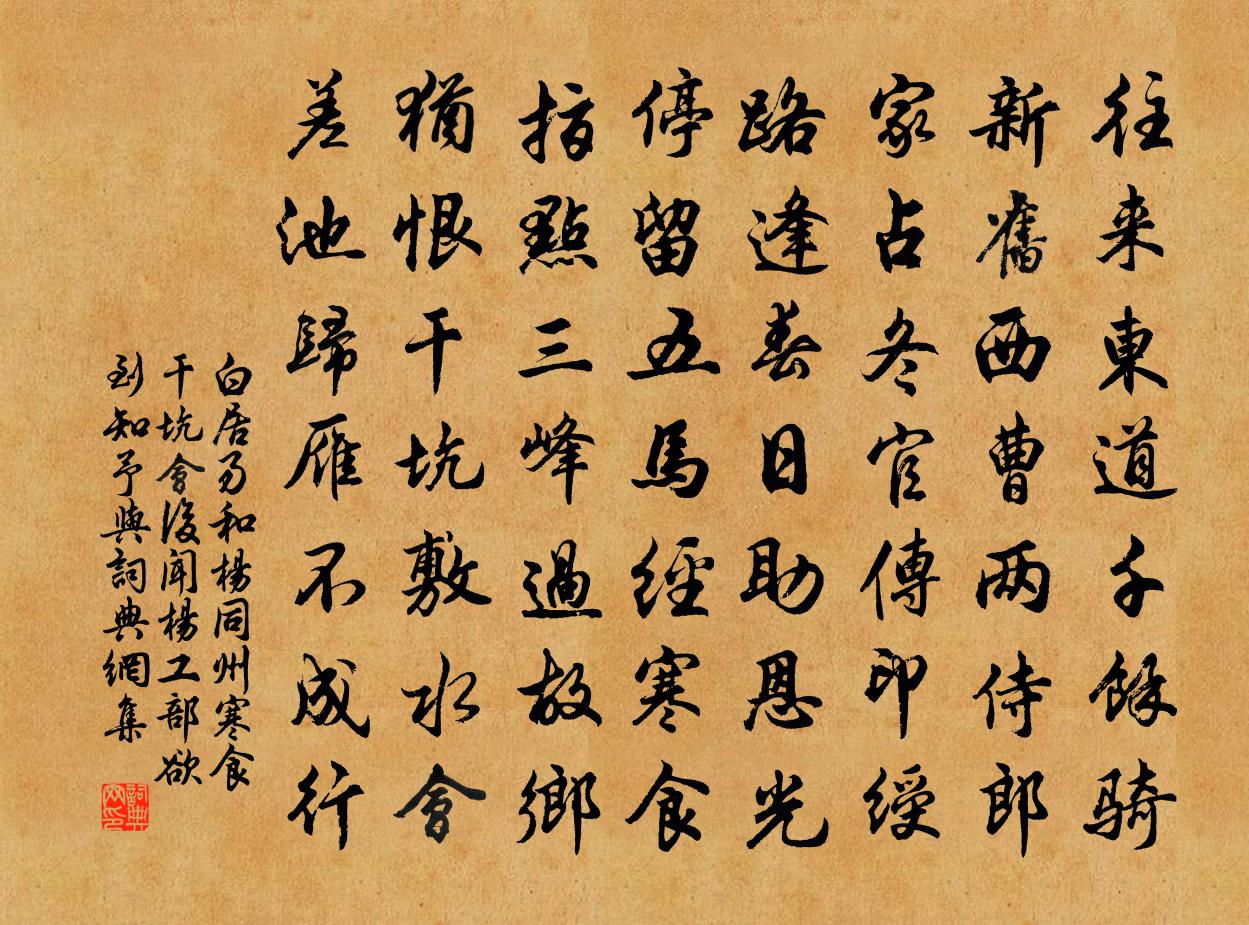 往来東道千餘騎
新舊西曹兩侍郎
家占冬官傳印綬
路逢春日助恩光
停留五馬經寒食
指點三峰過故鄉
猶恨乾坑敷水會
差池歸雁不成行
白居易和楊同州寒食
干坑會後聞楊工部欲
到知予與詞典網集
詞典网印